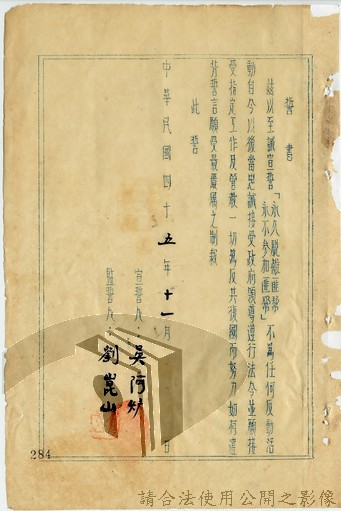 誓書
茲以至誠宣誓「永久脫離匪幫
永不參加匪幫」不為任何反動活
動自今以後當忠誠接受政府領導遵行法令並願接
受指定工作及管教一切為反共復國而努力如有違
背誓言願受最嚴厲之制裁
此誓
宣誓人:吳阿炉
監誓人:劉崑山
中華民國四十五年十一月 日
284
請合法使用公開之影像